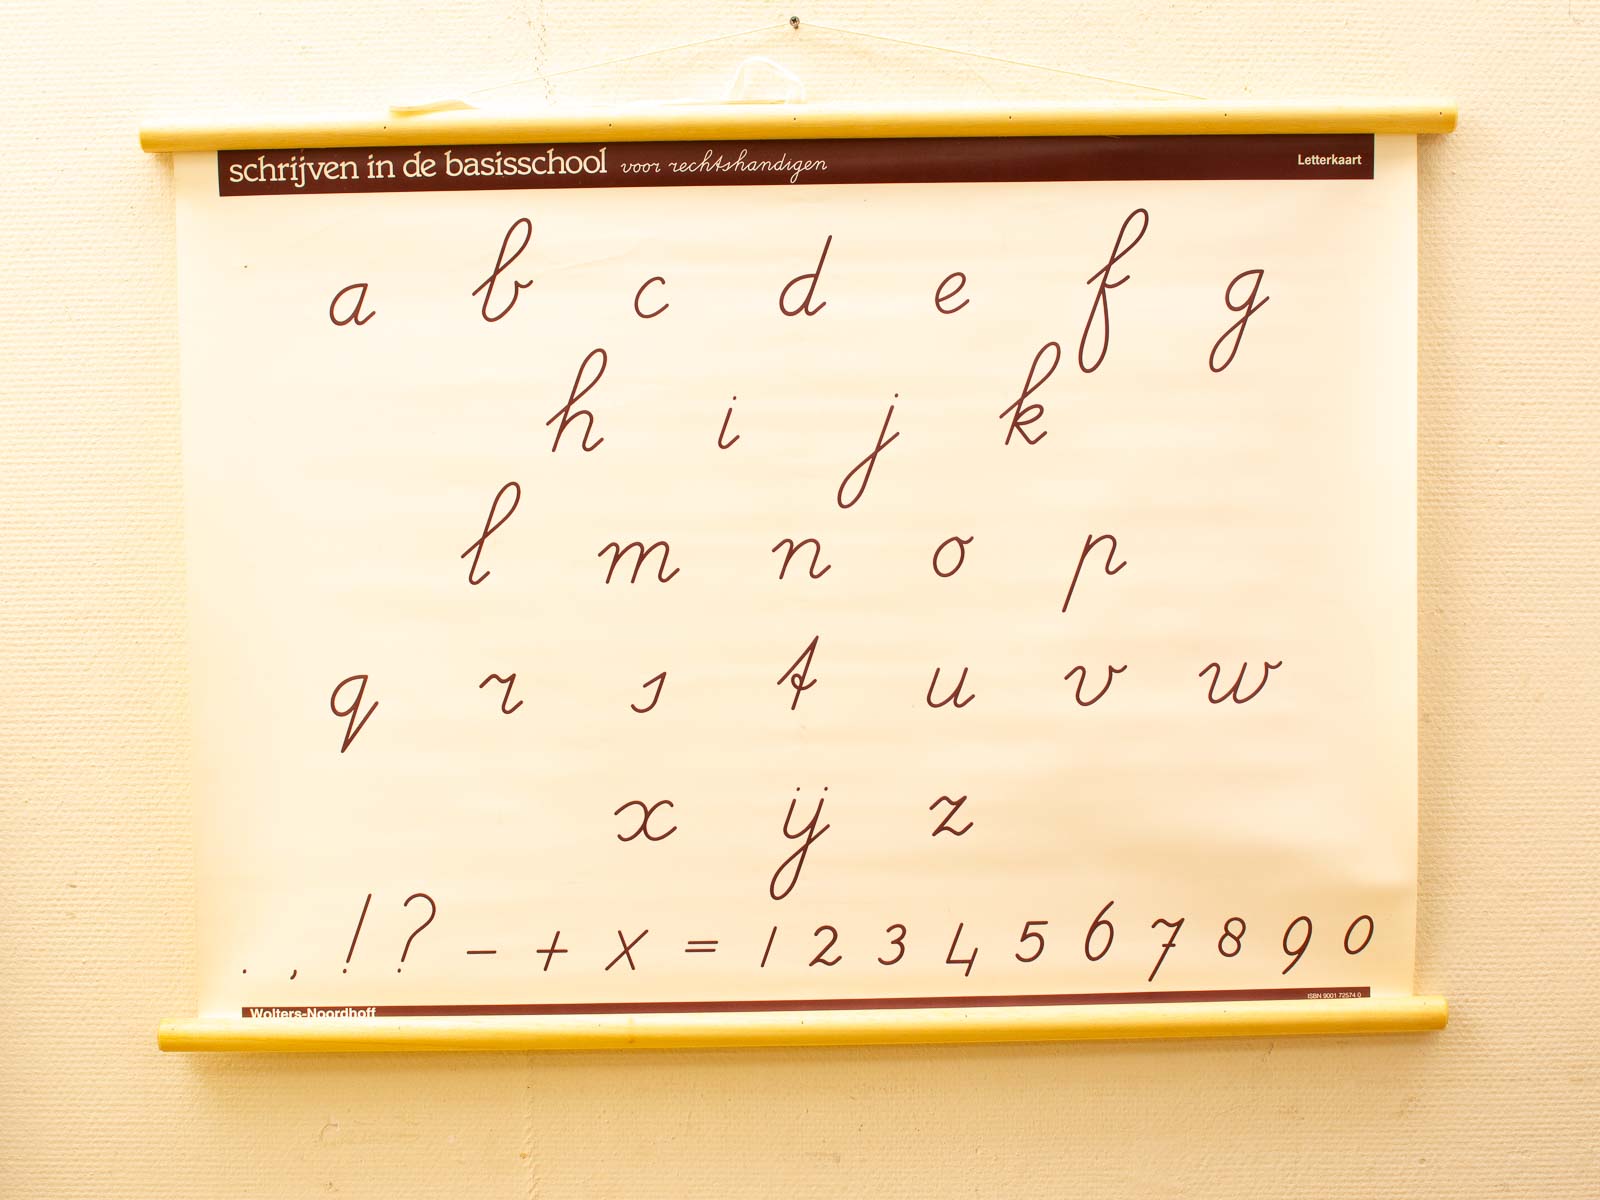 schrijven in de basisschool voor rechtshandigen Letterkaart
a b c d e f g
h i j k
l m n o p
q r s t u v w
x ij z
. , ! ? - + x = 1 2 3 4 5 6 7 8 9 0
Wolters-Noordhoff ISBN 9001 72574 0